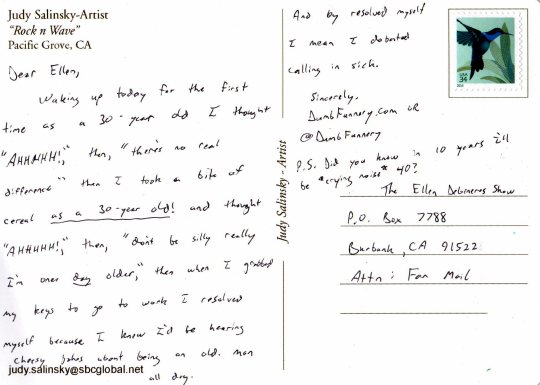 Judy Salinsky-Artist
"Rock n Wave"
Pacific Grove, CA
Dear Ellen,
Waking up today for the first
time as a 30-year old I thought
"AHHHHH!," then, "there's no real
difference" then I took a bite of
cereal as a 30-year old! and thought
"AHHHHH!," then, "don't be silly really
I'm one day older," then when I grabbed
my keys to go to work I resolved
myself because I knew I'd be hearing
cheesy jokes about being an old man
all day.
judy.salinsky@sbcglobal.net
And by resolved myself
I mean I debated
calling in sick.
Sincerely,
DumbFunnery.com OR
@DumbFunnery
P.S. Did you know in 10 years I'll
be *crying noise* 40?
Judy Salinsky - Artist
USA
34
The Ellen Degeneres Show
P.O. Box 7788
Burbank, CA 91522
Attn: Fan Mail